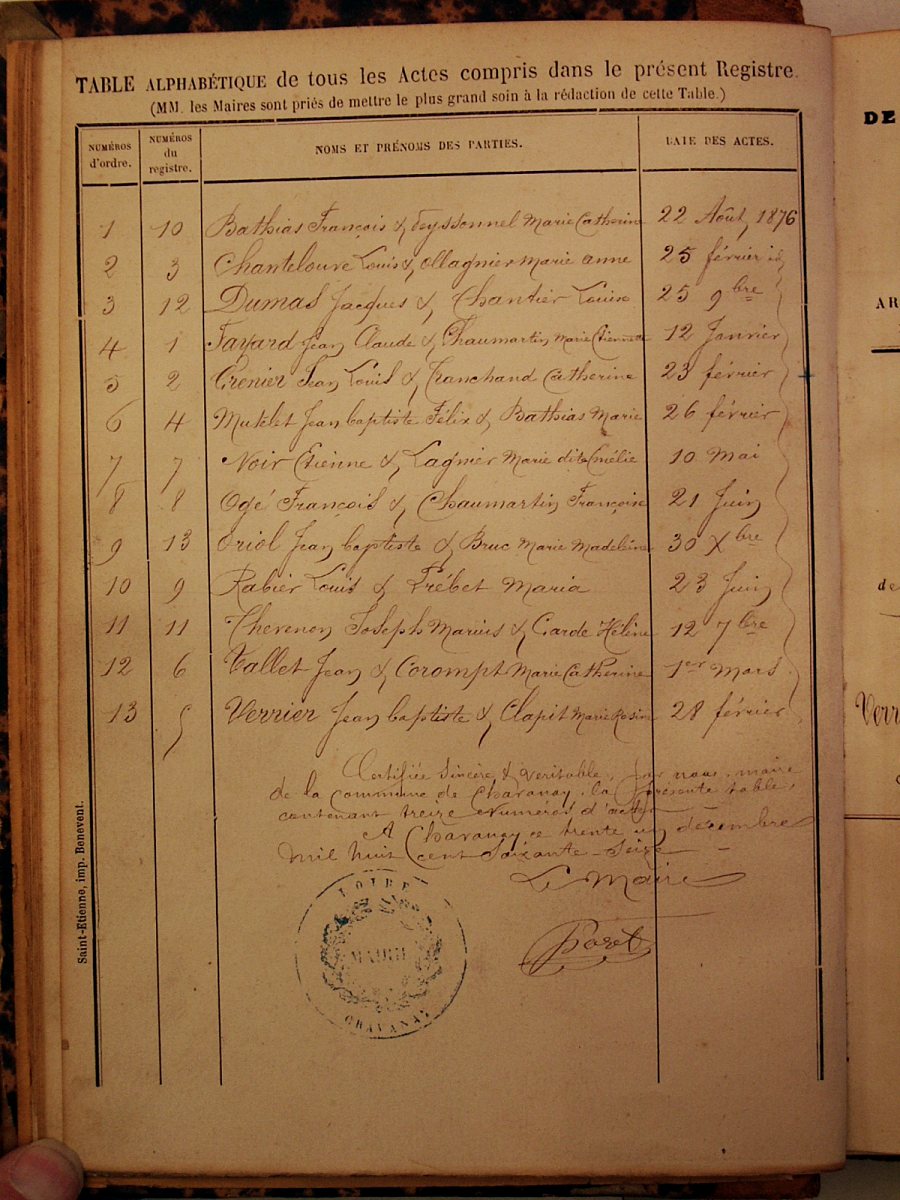 TABLE ALPHABÉTIQUE de tous les Actes compris dans le présent Registre.
(MM. les Maires sont priés de mettre le plus grand soin à la rédaction de cette Table.)
NUMÉROS d'ordre. NUMÉROS du registre. NOMS ET PRÉNOMS DES PARTIES. DATE DES ACTES.
1 10 Bathias François & Teyssonnel Marie Catherine 22 Août 1876
2 3 Chantelouve Louis & Ollagnier Marie anne 25 février id
3 12 Dumas Jacques & Chantier Louise 25 9bre
4 1 Fayard Jean Claude & Chaumartin Marie Etiennette 12 Janvier
5 2 Grenier Jean Louis & Tranchand Catherine 23 février
6 4 Mutelet Jean baptiste Félix & Bathias Marie 26 février
7 7 Noir Etienne & Lagnier Marie dite Emélie 10 Mai
8 8 Ogé François & Chaumartin Françoise 21 Juin
9 13 Oriol Jean baptiste & Bruc Marie Madeleine 30 Xbre
10 9 Rabier Louis & Frébet Maria 23 Juin
11 11 Thevenon Joseph Marius & Garde Hélène 12 7bre
12 6 Vallet Jean & Corompt Marie Catherine 1er mars
13 5 Verrier Jean baptiste & Clapit Marie Rosine 28 février
Certifiée Sincère & veritable, par nous, maire
de la commune de Chavanay, la présente table,
contenant treize numéros d'actes
A Chavanay ce trente un décembre
Mil huit Cent Soixante-Seize
Le Maire
LOIRE
MAIRIE
CHAVANAY
Saint-Etienne, imp. Benevent.
DE
AR
Verr